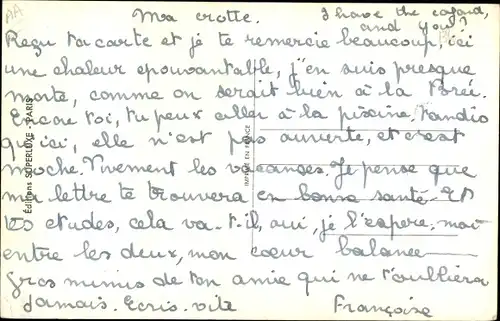 AA
Ma crotte. I have the cafard,
and you?
Reçu ta carte et je te remercie beaucoup, ici
une chaleur epouvantable, j'en suis presque
morte, comme on serait bien à la Brée.
Encore toi, tu peux aller à la piscine. Tandio
qu'ici, elle n'est pas ouverte, et c'est
moche. Vivement les vacances. Je pense que
ma lettre te trouvera en bonne santé. Et
tes etudes, cela va-t-il, oui, je l'espere. moi
entre les deux, mon cœur balance
Gros mimis de ton amie qui ne t'oubliera
Jamais. Ecris. vite Françoise
Editions SUPERLUXE - PARIS
IMPRIMÉ EN FRANCE